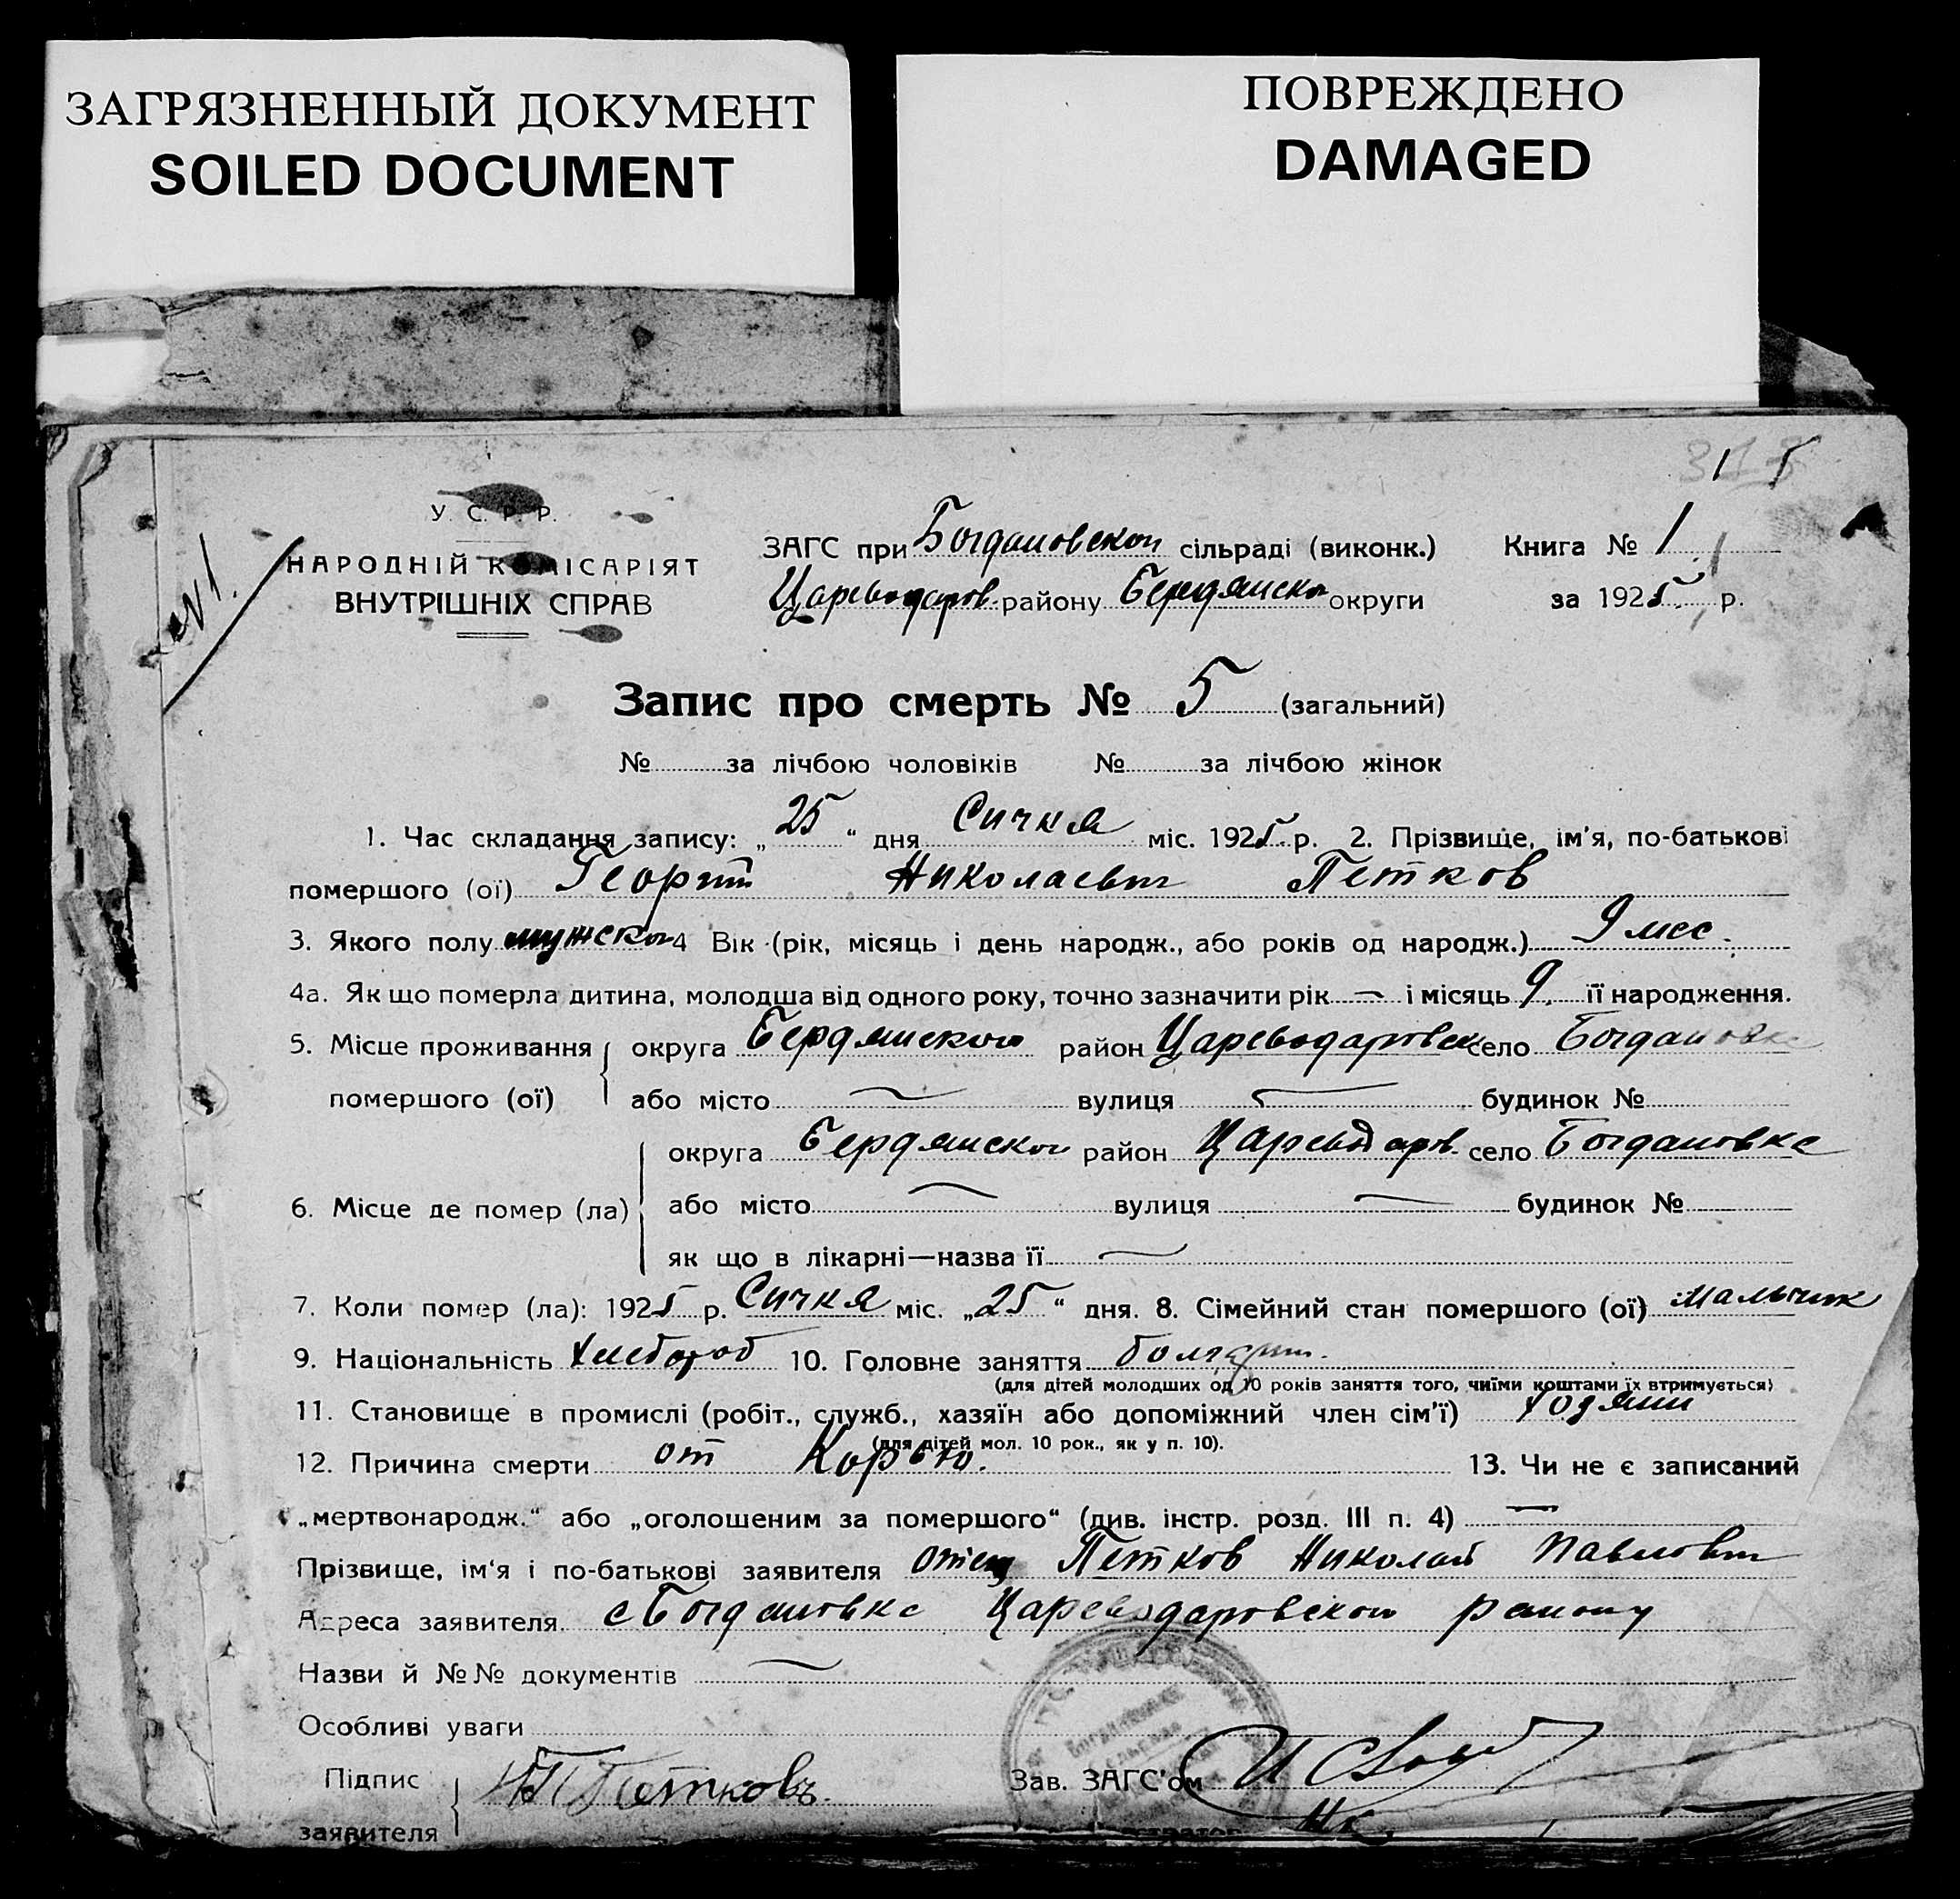 ЗАГРЯЗНЕННЫЙ ДОКУМЕНТ
SOILED DOCUMENT
ПОВРЕЖДЕНО
DAMAGED
У. С. Р. Р.
НАРОДНІЙ КОМІСАРІЯТ
ВНУТРІШНІХ СПРАВ
ЗАГС при Богдановской сільраді (виконк.) Книга № 1
Цареводаров. району Бердянской округи за 1925 р.
Запис про смерть № 5 (загальний)
№ за лічбою чоловіків № за лічбою жінок
1. Час складання запису: „25“ дня Сичня міс. 1925 р. 2. Прізвище, ім'я, по-батькові
помершого (ої) Георгий Николаевич Петков
3. Якого полу мужской 4 Вік (рік, місяць і день народж., або років од народж.) 9 мес.
4а. Як що померла дитина, молодша від одного року, точно зазначити рік — і місяць 9. її народження.
5. Місце проживання округа Бердянского район Цареводаровск село Богдановка
помершого (ої) або місто — вулиця — будинок №
округа Бердянской район Цареводаров. село Богдановка
6. Місце де помер (ла) або місто — вулиця — будинок №
як що в лікарні—назва її —
7. Коли помер (ла): 1925 р. Сичня міс. „25“ дня. 8. Сімейний стан помершого (ої) мальчик
9. Національність хлебороб 10. Головне заняття болгарин.
(для дітей молодших од 10 років заняття того, чиїми коштами їх втримується)
11. Становище в промислі (робіт., служб., хазяїн або допоміжний член сім'ї) ходяин
(для дітей мол. 10 рок., як у п. 10).
12. Причина смерти от Корью. 13. Чи не є записаний
„мертвонародж.“ або „оголошеним за помершого“ (див. інстр. розд. III п. 4) —
Прізвище, ім'я і по-батькові заявителя отец Петков Николай Павлович
Адреса заявителя с Богдановка Цареводаровского району
Назви й №№ документів —
Особливі уваги
Підпис Н П Петковъ. Зав. ЗАГС'ом
заявителя